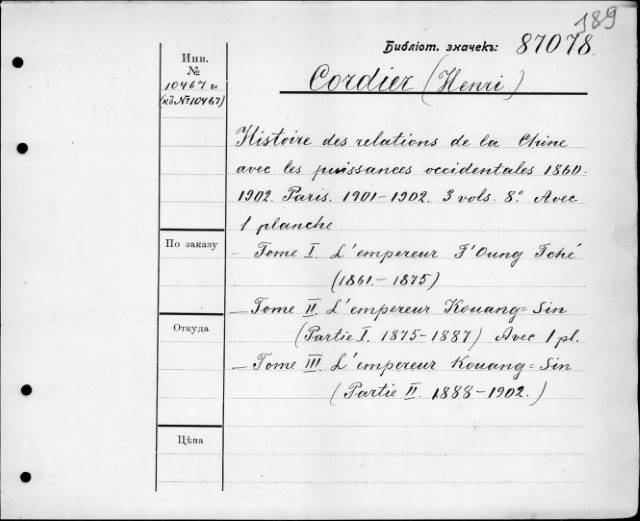 189
Библіот. значекъ: 87078.
Инв.
№
10467 а
(къ № 10467)
Cordier (Henri)
Histoire des relations de la Chine
avec les puissances occidentales 1860-
1902. Paris. 1901-1902. 3 vols. 8° Avec
1 planche
По заказу
- Tome I. L'empereur T'Oung Tché
(1861.-1875)
- Tome II. L'empereur Kouang=Sin
Откуда
(Partie I. 1875-1887) Avec 1 pl.
- Tome III. L'empereur Kouang=Sin
(Partie II. 1888-1902.)
Цѣна